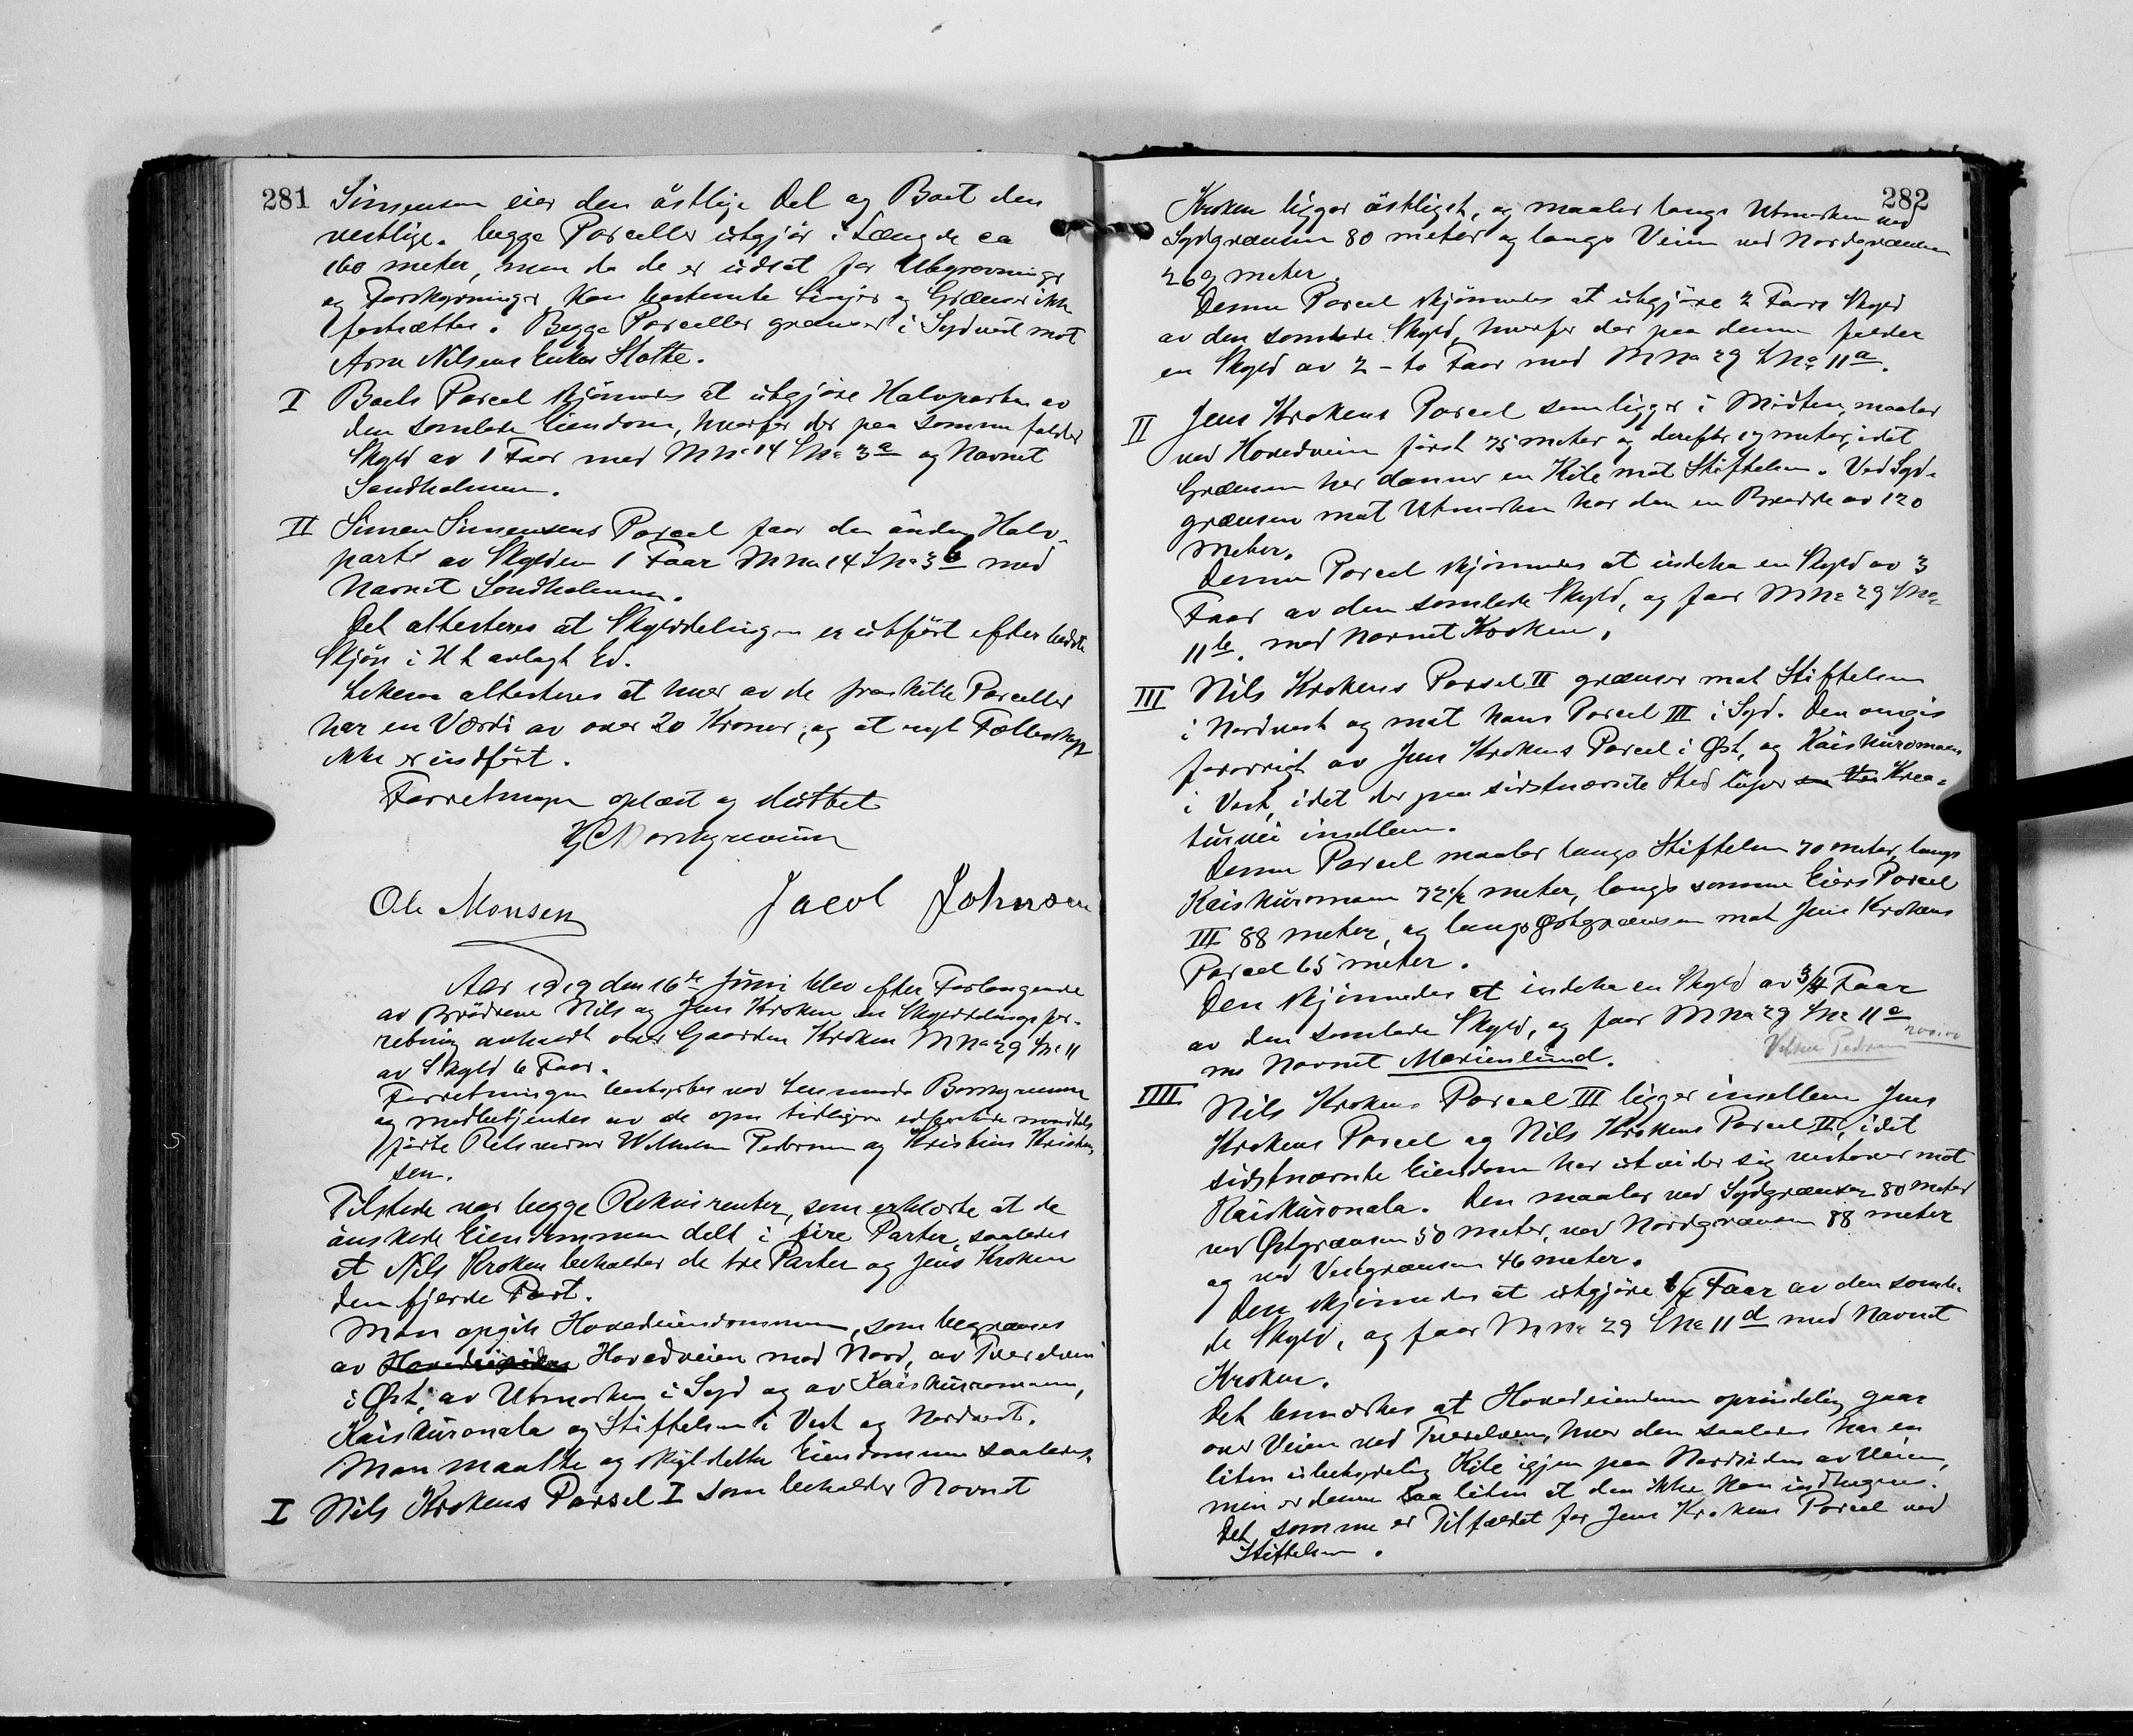 281
Simensen eier den östlige Del og Baet den
vestlige. begge Parceller utgjör i Længde ca
160 meter, men da de er utsat for Utgravninger
og Forskyvninger kan bestemte Linjer og Grænser ikke
fastsættes. Begge Parceller grænser i Sydvest mot
Arne Nilsens Enkes Slotte.
I Baets Parcel skjönnes at utgjöre Halvparten av
den samlede Eiendom, hvorfor der paa samme falder
Skyld av 1 Faar med M No 14 L No 3a og Navnet
Sandholmen.
II Simen Simensens Parcel faar den anden Halv-
part av Skylden 1 Faar M No 14 L No 3b med
Navnet Sandholmen.
Det attesteres at Skylddelingen er utfört efter bedste
Skjön i H t avlagt Ed.
Likesaa attesteres at hver av de fraskilte Parceller
har en Værdi av over 20 Kroner, og at nyt Fællesskap
ikke er indfört.
Forretningen oplæst og sluttet
Ole Monsen Jacob Johnsen
Aar 1919 den 16de Juni blev efter Forlangende
av Brödrene Nils og Jens Kroken en Skylddelingsfor-
retning avholdt over Gaarden Kroken M No 29 L No 11
av Skyld 6 Faar.
Forretningen bestyrtes ved Lensmand Borchgrevink
og medbetjentes av de opn tidligere edfæstede
Retsvidner Wilhelm Pedersen og Kristian Kristian
sen.
Tilstede var begge Rekvirenter, som erklærte at de
önskede Eiendommen delt i fire Parter, saaledes
at Nils Kroken beholder de tre Parter og Jens Kroken
den fjerde Part.
Man opgik Hovedeiendommen, som begrænses
av Hovedveien mod Nord, av Tverelven
i Öst, av Utmarken i Syd og av Kaiskuromaa,
Kaiskuronala og Stiftelsen i Vest og Nordvest.
Man maalte og skyldsatte Eiendommen saaledes.
I Nils Krokens Parsel I som beholder Navnet
282
Kroken ligger östligst, og maaler langs Utmarken ved
Sydgrænsen 80 meter og langs Veien ved Nordgrænsen
269 meter.
Denne Parcel skjönnedes at utgjöre 2 Faars Skyld
av den samlede Skyld, hvorfor der paa denne falder
en Skyld av 2 - to Faar med M No 29 L No 11a.
II Jens Krokens Parcel som ligger i Midten, maaler
ved Hovedveien först 75 meter og derefter 17 meter, idet
Grænsen her danner en Kile mot Stiftelsen. Ved Syd-
grænsen mot Utmarken har den en Bredde av 120
meter.
Denne Parcel skjönnedes at indeha en Skyld av 3
Faar av den samlede Skyld, og faar M No 29 L No
11b. med Navnet Kroken.
III Nils Krokens Parsel II grænser mot Stiftelsen
i Nordvest og mot hans Parcel III i Syd. Den omgis
forövrigt av Jens Krokens Parcel i Øst, og Kaiskuromaa
i Vest, idet der paa sidstnævnte Sted ligger Krea-
turvei imellem.
Denne Parcel maaler langs Stiftelsen 70 meter, langs
Kaiskuromaa 72 1/2 meter, langs samme Eiers Parcel
III 88 meter, og langs Østgrænsen mot Jens Krokens
Parcel 65 meter.
Den skjönnedes at indeha en Skyld av 3/4 Faar
av den samlede Skyld, og faar M No 29 L No 11c
m Navnet Marienlund.
IIII Nils Krokens Parcel III ligger imellem Jens
Krokens Parcel og Nils Krokens Parcel II, idet
sidstnævnte Eiendom her utvider sig vestover mot
Kaiskuronala. Den maaler ved Sydgrænsen 80 meter
ved Østgrænsen 50 meter, ved Nordgrænsen 88 meter
og ved Vestgrænsen 46 meter.
Den skjönnedes at utgjöre 1/4 Faar av den samle-
de Skyld, og faar M No 29 L No 11d med Navnet
Kroken.
Det bemærkes at Hovedeiendommen oprindelig gaar
over Veien ved Tverelven, hvor den saaledes har en
liten ubetydelig Kile igjen paa Nordsiden av Veien,
men er denne saa liten at den ikke kan indhegnes.
Det samme er Tilfældet for Jens Krokens Parcel ved
Stiftelsen.